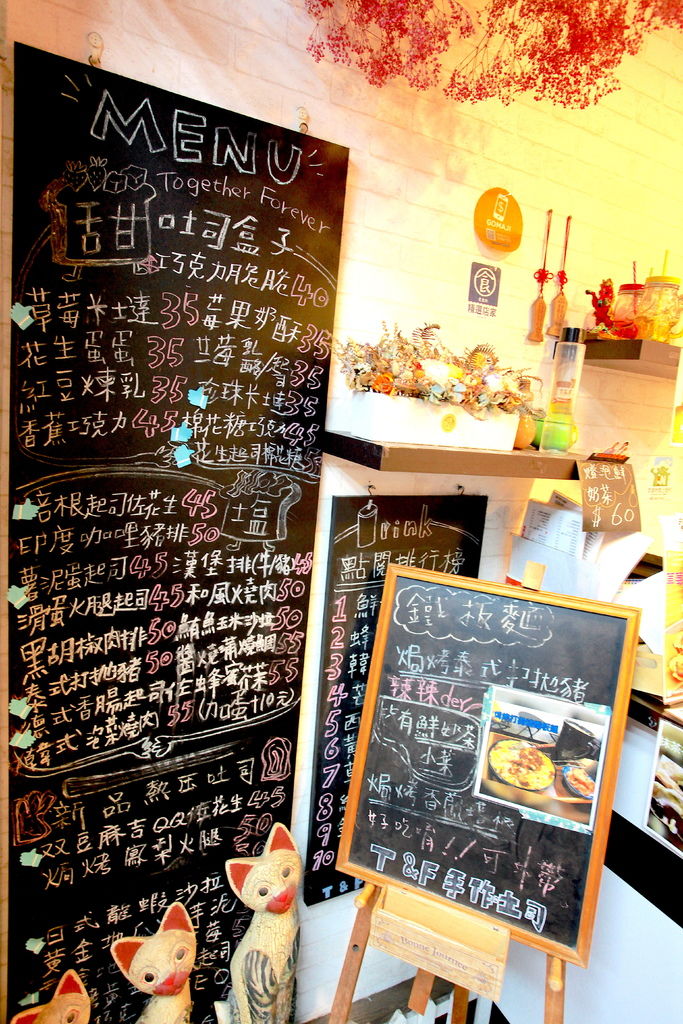 MENU
Together Forever
甜吐司盒子
巧克力脆脆40
草莓米土達35 莓果奶酥35
花生蛋蛋35
紅豆煉乳35 珍珠卡士達35
香蕉巧克力45 棉花糖巧克45
花生起司棉花糖55
鹽
培根起司佐花生45
印度咖哩豬排50
薯泥蛋起司45 漢堡排(牛/豬)45
滑蛋火腿起司45 和風燒肉50
黑胡椒肉排50 鮪魚玉米沙拉50
泰式打拋豬50 醬燒蒲燒鯛55
德式香腸起司佐蜂蜜芥茉55
韓式泡菜燒肉55 (加蛋+10元)
新品熱压吐司
双豆麻吉QQ佐花生45
焗烤鳳梨火腿50
日式龍蝦沙拉
黃金
Drink
點閱排行榜
1 鮮
2 蜂
3 韓
4
5 西
6 黃
7
8
9
10
T & F
鐵板麵
焗烤泰式打拋豬
辣辣der
皆有鮮奶茶
小菜
焗烤香
好吃唷!!可外帶
T & F 手作土司
Bonne Journée
GOMAJI
食
精選店家
奶茶
$60